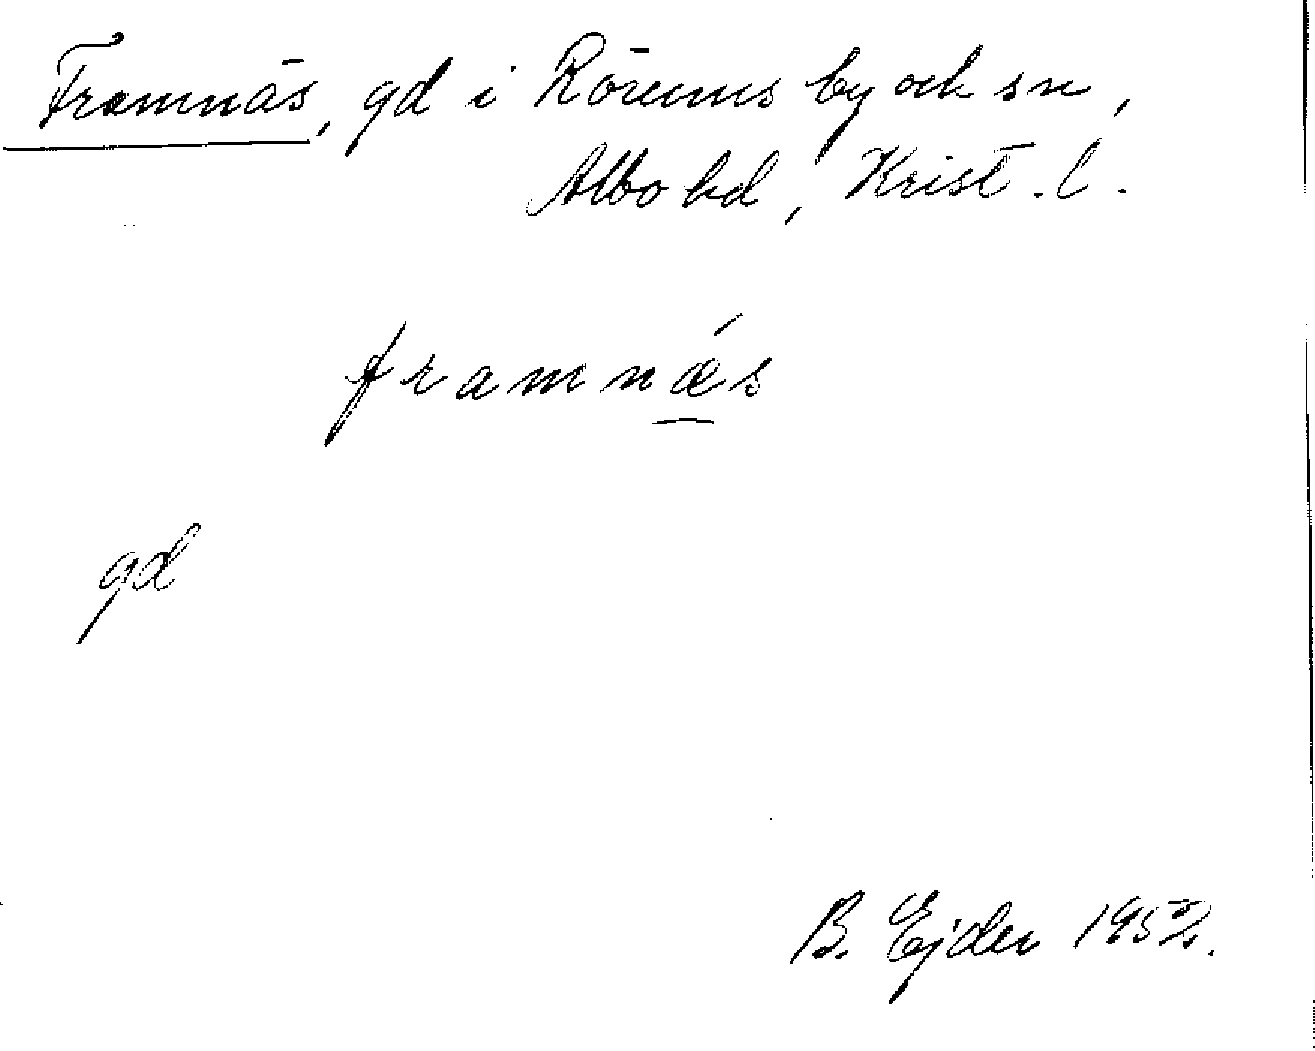 Framnäs, gd i Rörums by och sn,
Albo hd, Krist. l.
framnǽs
gd
B. Ejder 1952.